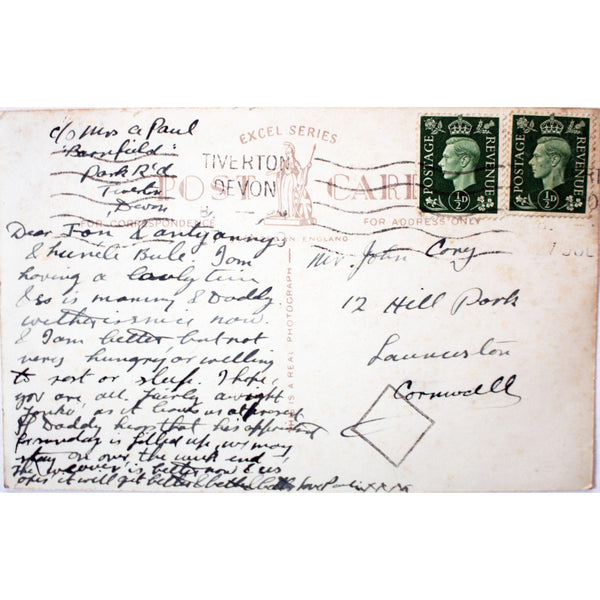 c/o Mrs a Paul
"Barnfield"
Park R'd
Tiverton
Devon
EXCEL SERIES
TIVERTON
DEVON
POST CARD
FOR CORRESPONDENCE
FOR ADDRESS ONLY
ENGLAND
THIS IS A REAL PHOTOGRAPH
POSTAGE REVENUE
½D
POSTAGE REVENUE
½D
JUL
Mr John Corey
12 Hill Park
Launceston
Cornwall
Dear Jon & anty anny
& Bule I am
having a lovly tim
& so is mammy & Daddy
now.
& I am better but not
very hungry or willing
to rest or sleep. I hope
you are all fairly alright
as it
If Daddy hears that his appointment
for monday is filled up, we may
stay on over the week end
The weaver is better now & ses
it will get better & better & better love xxx